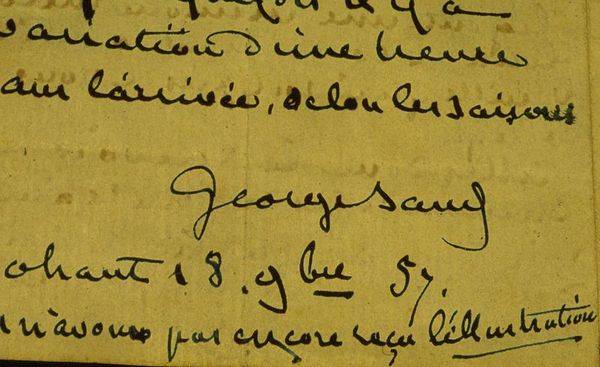 il y a
variation d'une heure
l'arrivée, selon les saisons
George Sand
ohant 18. 9bre 57.
n'avons pas encore reçu l'illustration